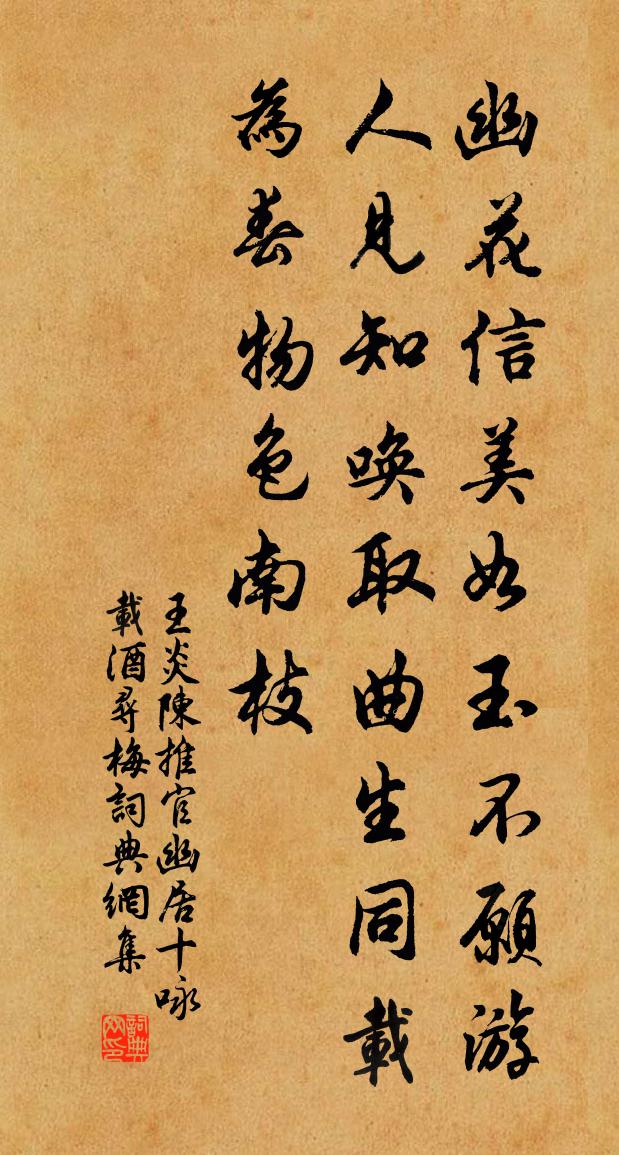 幽花信美如玉不願游
人見知喚取曲生同載
為春物色南枝
王炎陳推官幽居十咏
載酒尋梅詞典網集
詞典
网印